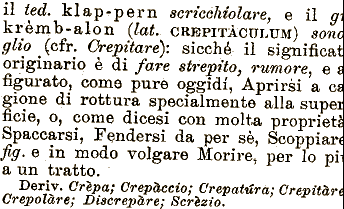 il ted. klap-pern scricchiolare, e il g
krèmb-alon (lat. CREPITÀCULUM) sono
glio (cfr. Crepitare): sicché il significat
originario è di fare strepito, rumore, e a
figurato, come pure oggidí, Aprirsi a ca
gione di rottura specialmente alla super
ficie, o, come dicesi con molta proprietà
Spaccarsi, Fendersi da per sè, Scoppiare
fig. e in modo volgare Morire, per lo pi
a un tratto.
Deriv. Crèpa; Crepàccio; Crepatúra; Crepitàre
Crepolàre; Discrepàre; Scrèzio.